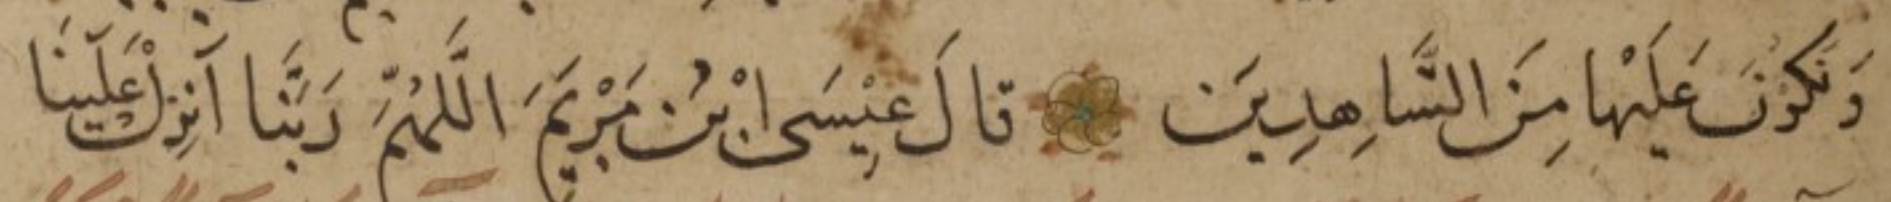 وَنَكُونَ عَلَيْهَا مِنَ الشَّاهِدِينَ قَالَ عِيْسَى ابْنُ مَرْيَمَ اللَّهُمَّ رَبَّنَا أَنْزِلْ عَلَيْنَا